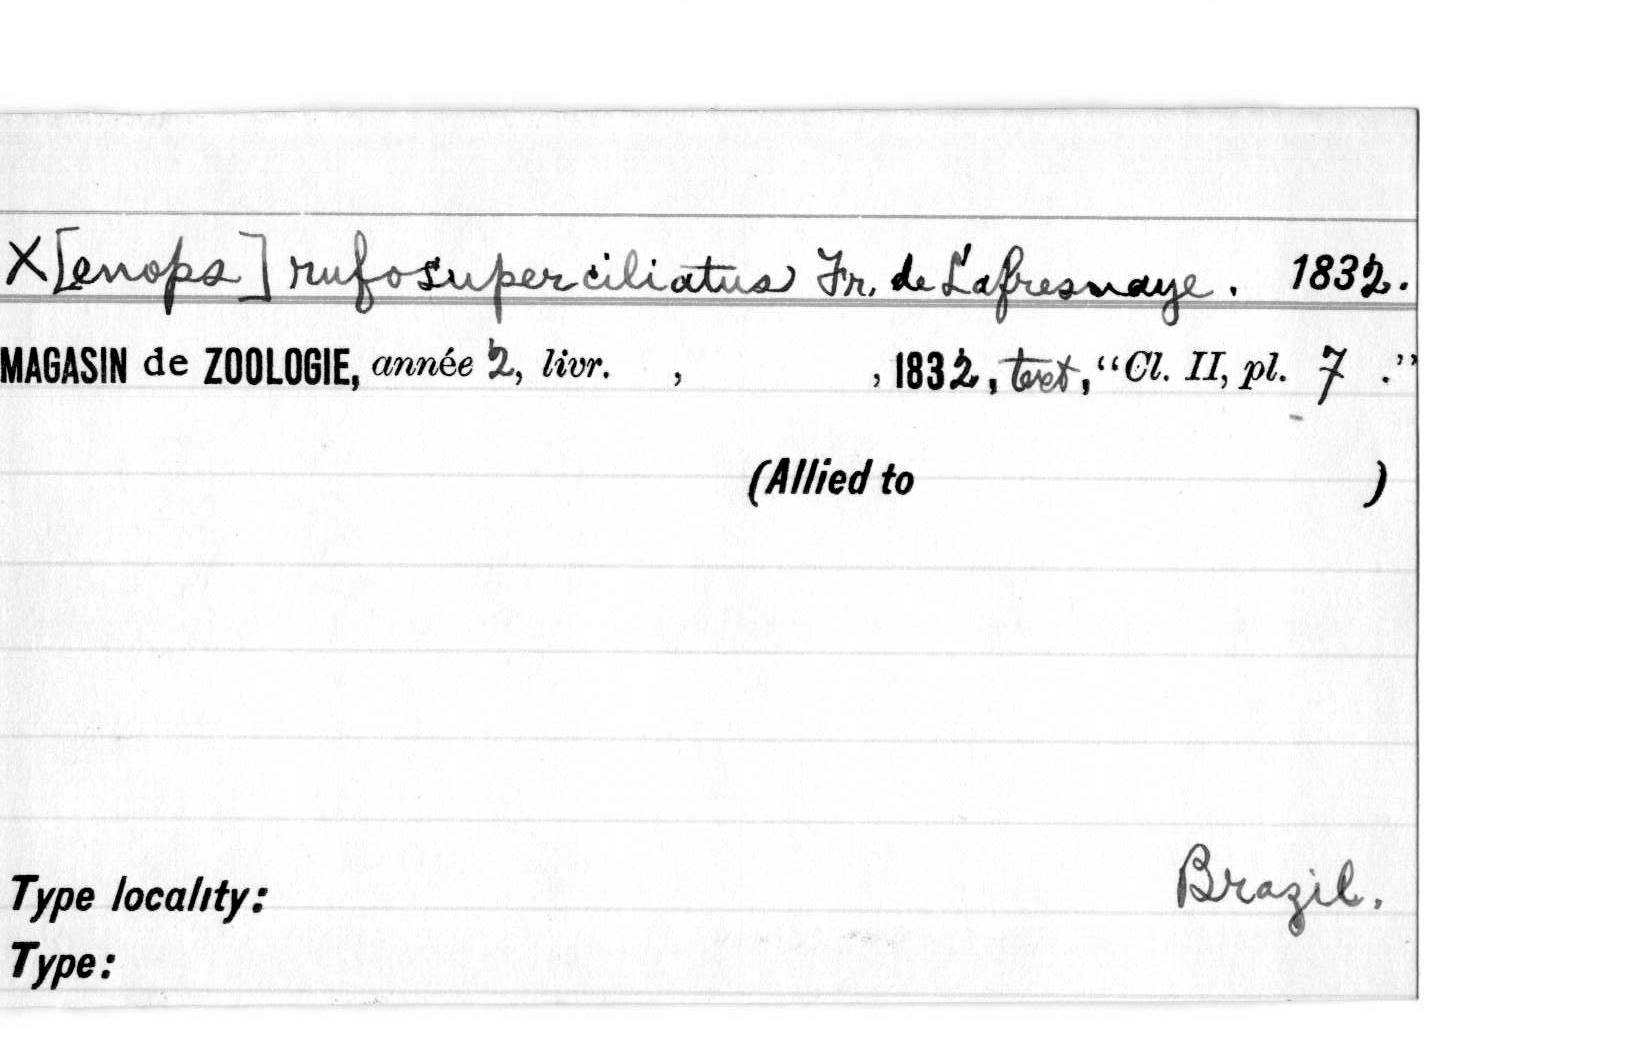 X[enops] rufosuperciliatus Fr. de Lafresnaye. 1832.
MAGASIN de ZOOLOGIE, année 2, livr. , , 1832, text, “Cl. II, pl. 7 .”
(Allied to )
Brazil.
Type locality:
Type: